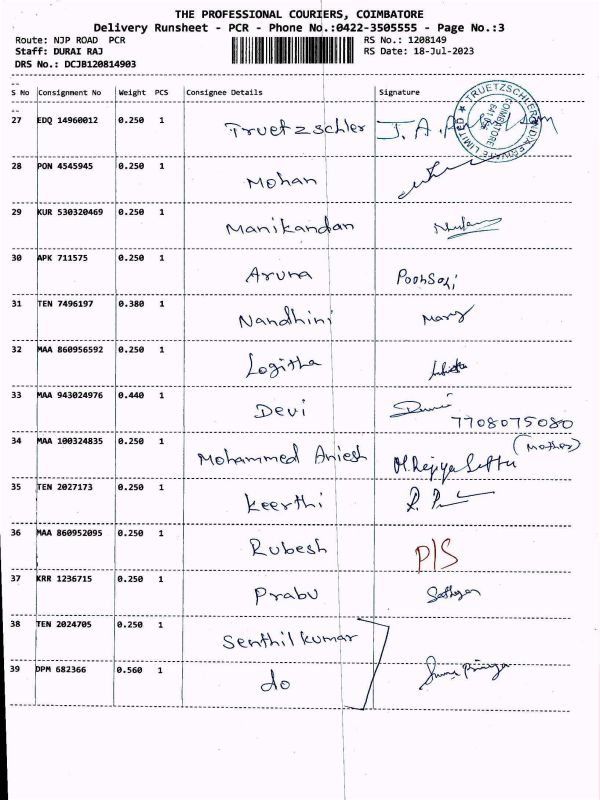 THE PROFESSIONAL COURIERS, COIMBATORE
Delivery Runsheet - PCR - Phone No.:0422-3505555 - Page No.:3
Route: NJP ROAD PCR RS No.: 1208149
Staff: DURAI RAJ RS Date: 18-Jul-2023
DRS No.: DCJB120814903
S No Consignment No Weight PCS Consignee Details Signature
27 EDQ 14960012 0.250 1 Truetzschler J.A.
TRUETZSCHLER INDIA PRIVATE LIMITED
COIMBATORE
28 PON 4545945 0.250 1 Mohan
29 KUR 530320469 0.250 1 Manikandan
30 APK 711575 0.250 1 Aruna
31 TEN 7496197 0.380 1 Nandhini Mary
32 MAA 860956592 0.250 1 Logitha
33 MAA 943024976 0.440 1 Devi Devi
7708075080
34 MAA 100324835 0.250 1 Mohammed Aniesh (Mother)
35 TEN 2027173 0.250 1 Keerthi
36 MAA 860952095 0.250 1 Rubesh P/S
37 KRR 1236715 0.250 1 Prabu
38 TEN 2024705 0.250 1 Senthil kumar
39 DPM 682366 0.560 1 do